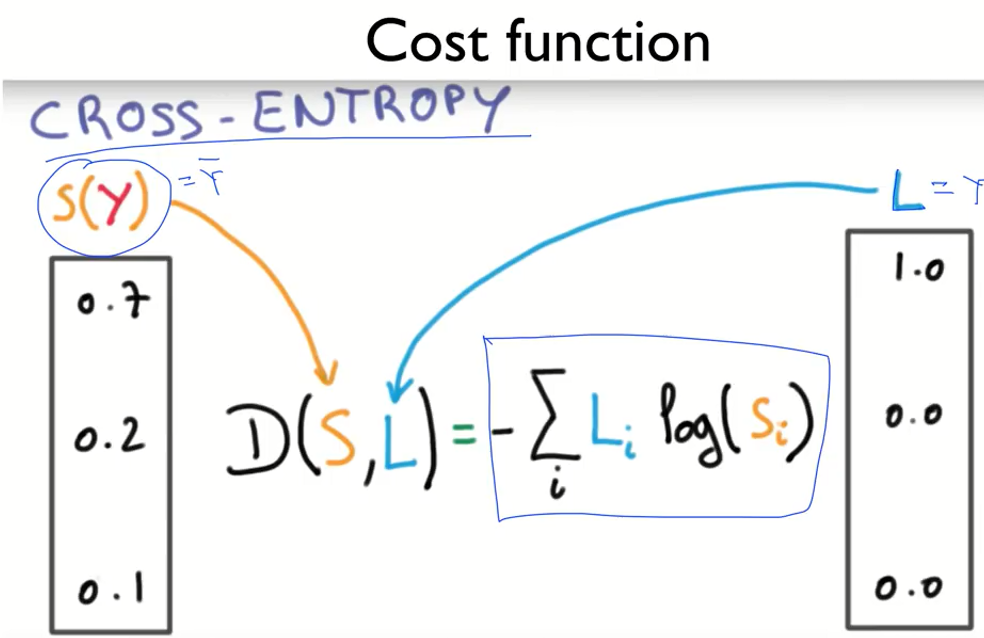 Cost function
CROSS-ENTROPY
S(Y) = Ȳ
L = Y
0.7
0.2
0.1
D(S,L) = -∑i Li log(Si)
1.0
0.0
0.0